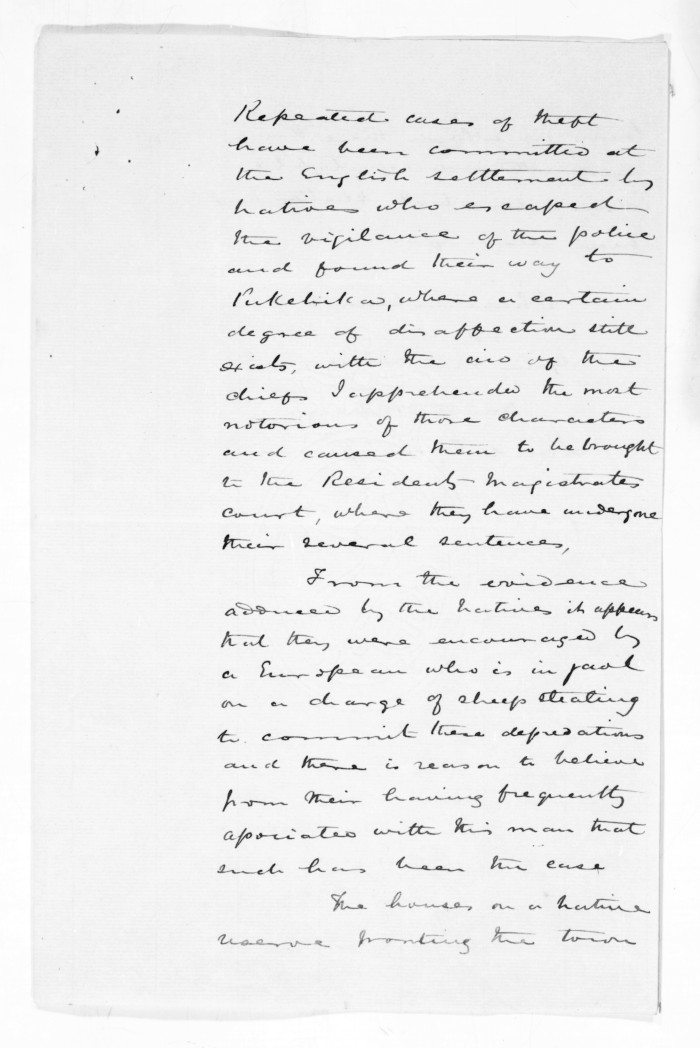 Repeated cases of theft
have been committed at
the English settlement by
Natives who escaped
the vigilance of the police
and found their way to
Pukehika, where a certain
degree of disaffection still
exists, with the aid of the
chiefs I apprehended the most
notorious of those characters
and caused them to be brought
to the Resident Magistrates
court, where they have undergone
their several sentences,
From the evidence
adduced by the Natives it appears
that they were encouraged by
a European who is in gaol
on a charge of sheep stealing
to commit these depredations
and there is reason to believe
from their having frequently
associated with this man that
such has been the case
The houses on a native
reserve fronting the town